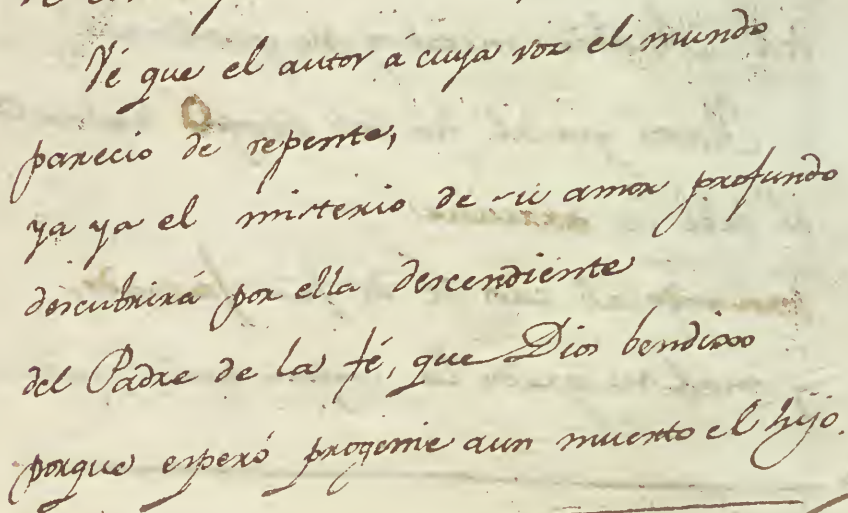 Vé que el autor á cuya voz el mundo
parecio de repente,
ya ya el misterio de su amor profundo
descubrirá por ella descendiente
del Padre de la fé, que Dios bendixo
porque esperó progenie aun muerto el hijo.